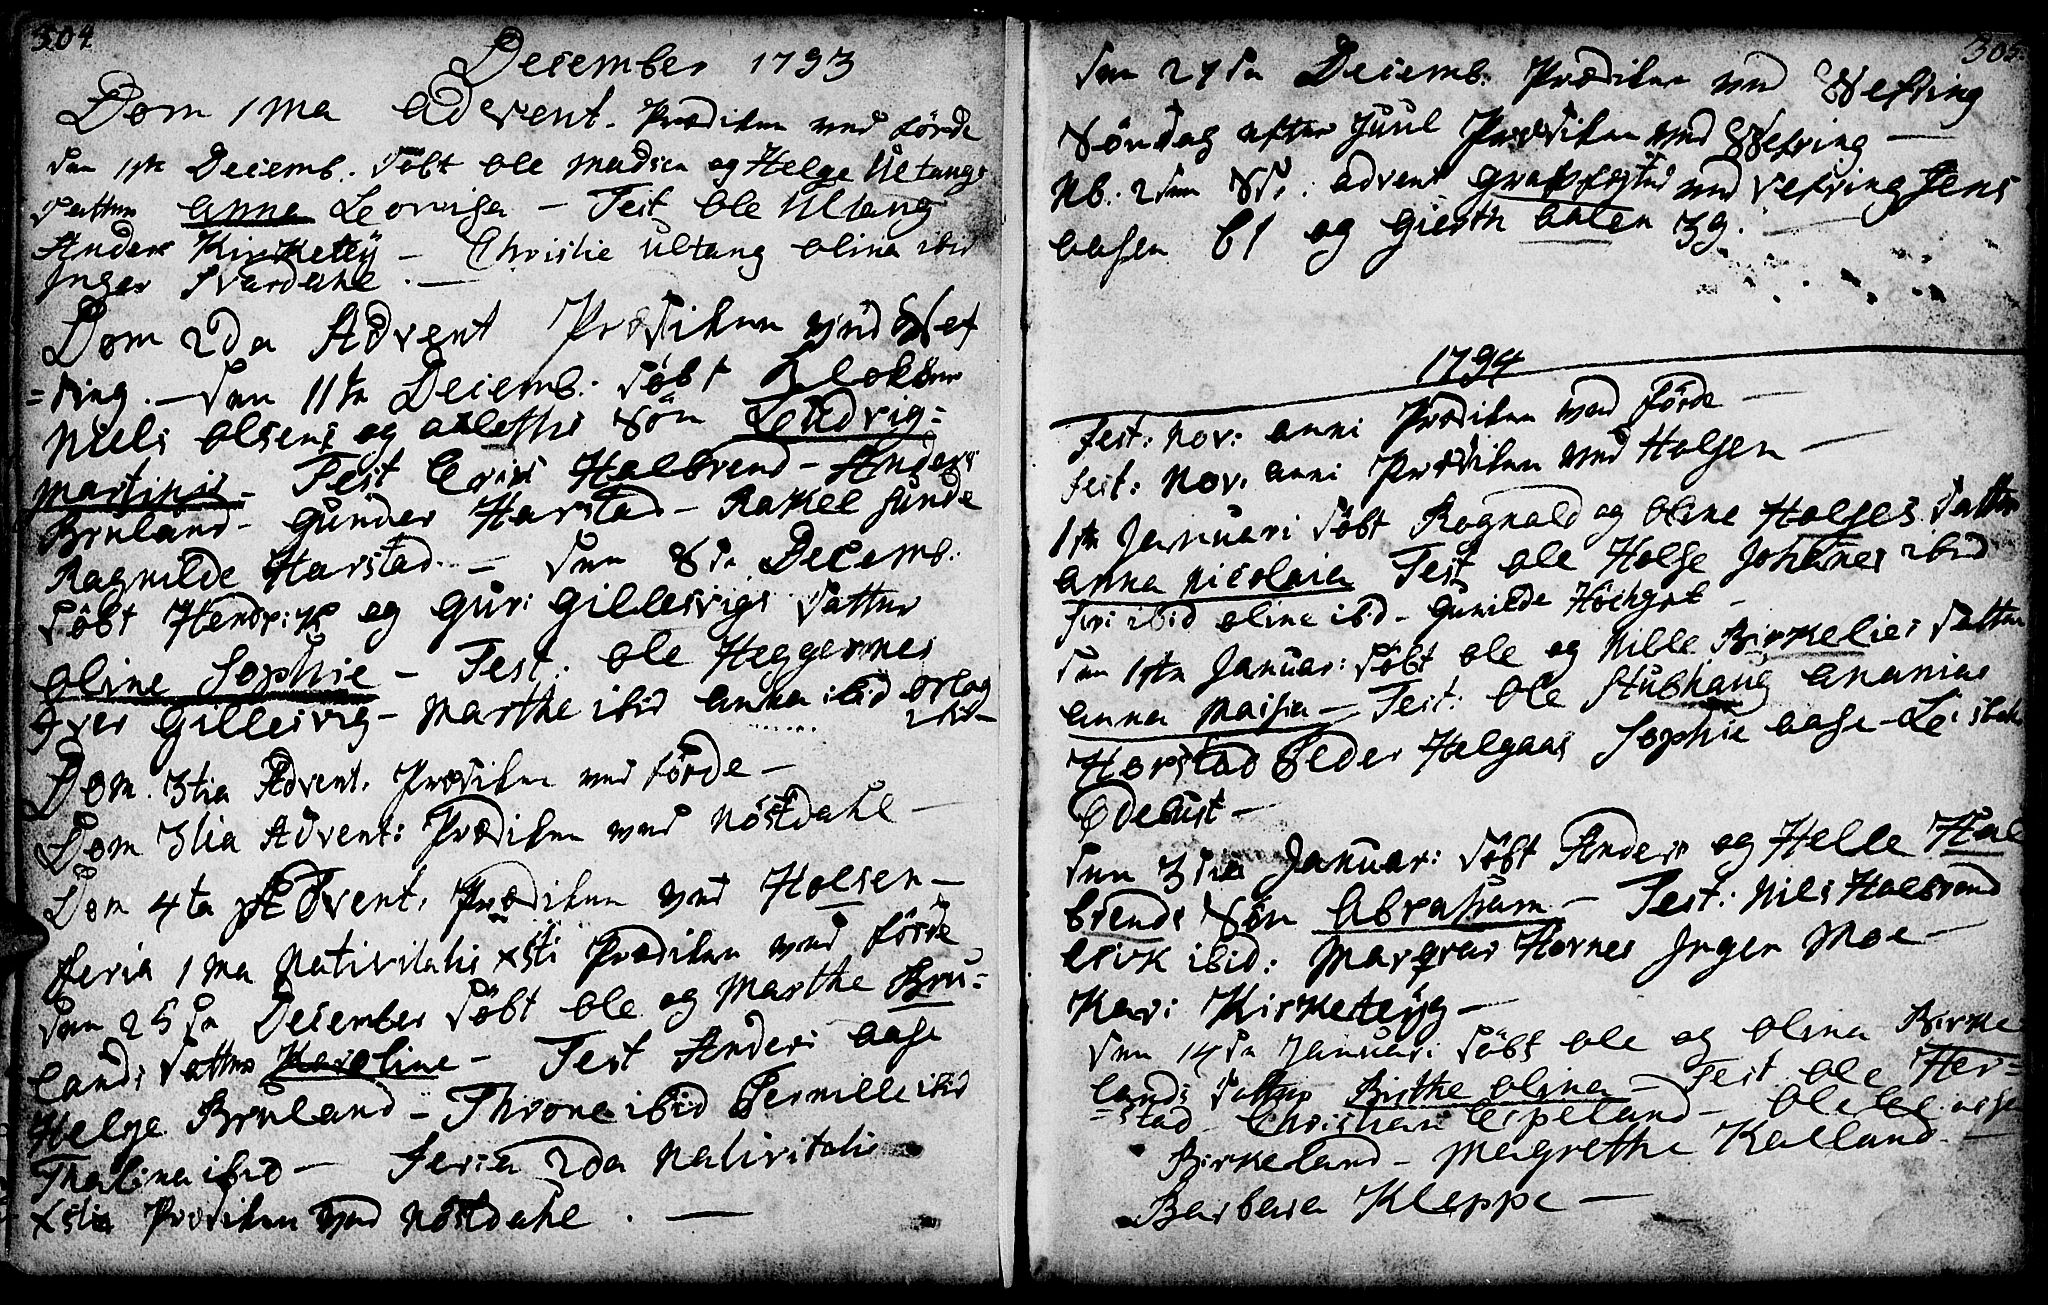 304
December 1793
Dom 1ma Advent. Prædiken ved førde
den 1ste Decemb. døbt Ole Madsen og Helge Ultangs
datter Anna Lovisa - Test Ole Ultang
Anders Kirketeÿ - Christie Ultang Olina ibid
Inger Svardahl. -
Dom 2da Advent Prædiken ved Wef
=ring. - den 11te Decemb: døbt Klokker
Niels Olsens og Alethis Søn Ludvig=
Martinus - Test Erik Halbrend - Anders
Bruland - Gunder Harstad - Rakel Sunde
Ragnilde Harstad. - den 8de Decemb:
døbt Hendrik og Guri Gillesvigs datter
Oline Sophie - Test. Ole Heggernes
Iver Gillesvig - Marthe ibid Anna ibid
ibid -
Dom. 3tia Advent. Prædiken ved førde -
Dom 3tia Advent: Prædiken ved Nøstdahl -
Dom 4ta Advent, Prædiken ved Holsen -
Feria 1ma Nativitatis xsti Prædiken ved førde
den 25de December døbt Ole og Marthe Bru=
lands datter Karoline - Test Anders Aase
Helge Bruland - Throne ibid Pernille ibid
Thalina ibid - Feria 2da Nativitatis
xsti Prædiken ved Nøstdahl. -
305.
den 27de Decemb. Prædiken ved Wefring
Søndag efter Juul Prædiken ved Wefring -
Nb. 2den Sd. Advent ved Vefring Jens
Aasen 61 og Gierth Aalen 39. -
1794
Fest: Nov: anni Prædiken ved førde -
fest: Nov. anni Prædiken ved Holsen -
1ste Januari døbt Ragnald og Oline Holses datter
Anna Nicolaia Test Ole Holse Johannes ibid
Siri ibid Oline ibid - Gunilde -
den 1ste Januar: døbt Ole og Nille Birkelies datter
Anna Maisa - Test: Ole Stubhaug Ananias
Horstad Peder Helgaas Sophie Aase -
Edebust -
den 3die Januar: døbt Anders og Helle Hal
brends Søn Abraham - Test: Nils Halbrend
Erik ibid: Hornes Inger Moe -
Kari Kirketeÿg -
den 14de Januari døbt Ole og Olina Birke
lands datter Birthe Olina - Test Ole Her=
=stad Christian Espeland - Ole
Birkeland - Magrethe Kalland. -
Barbara Kleppe -